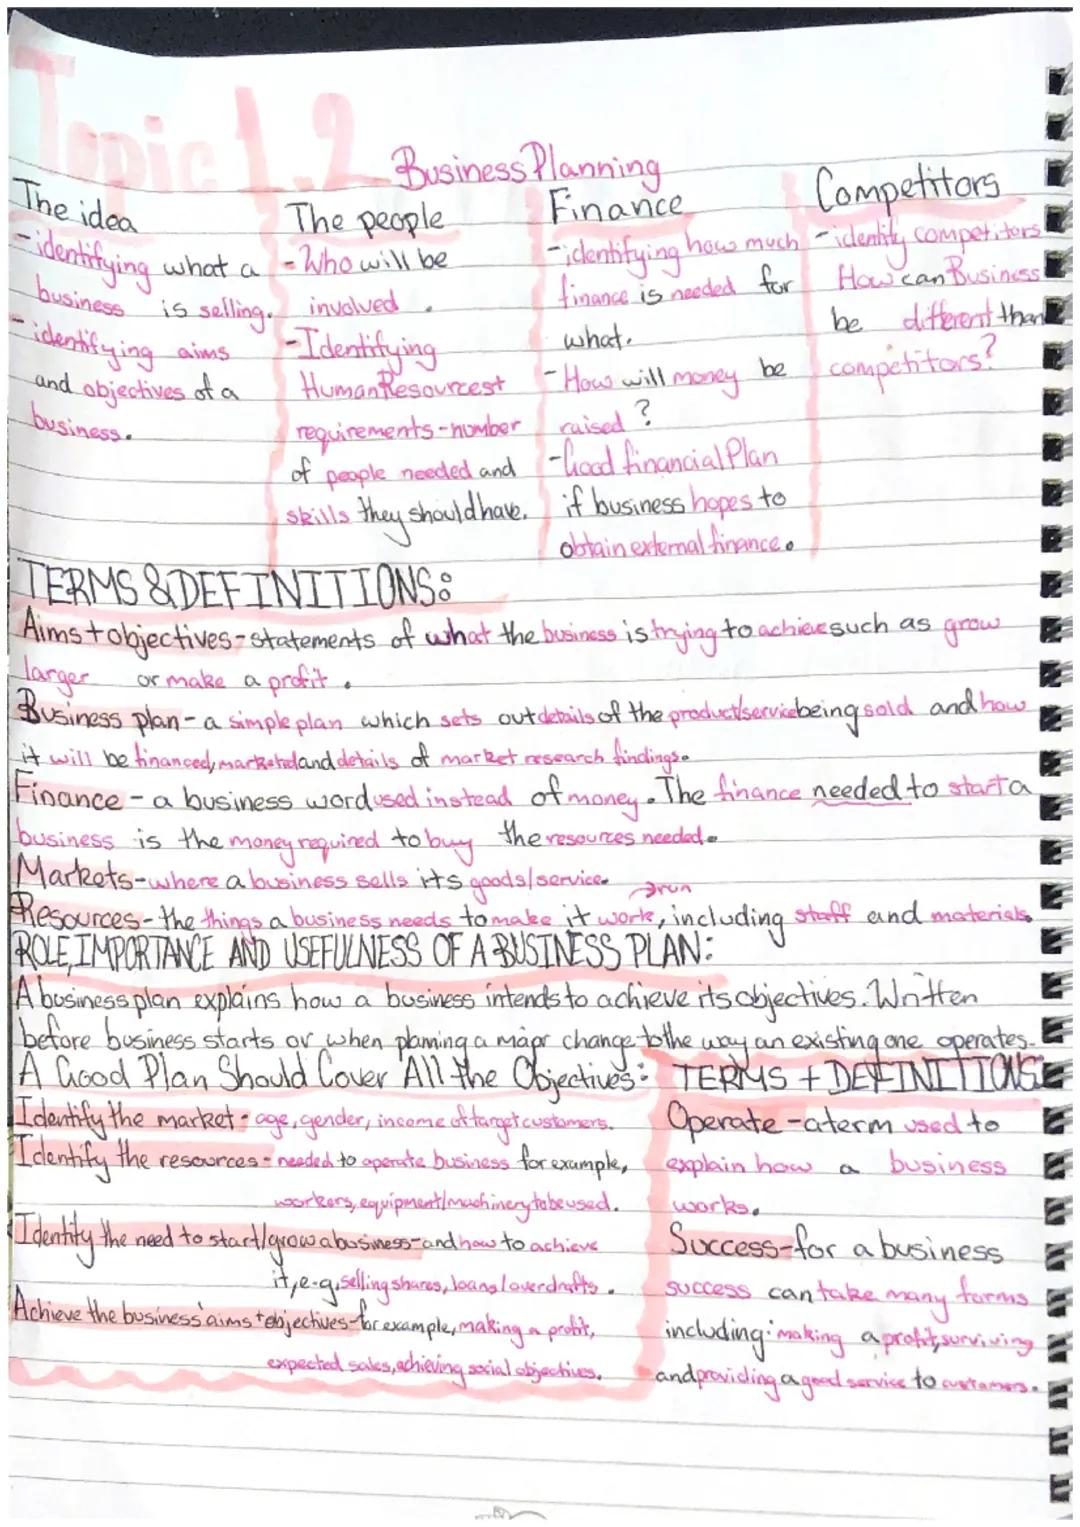 Topic 1.2
Business Planning
The idea
-identifying what a
business is selling.
-identifying aims
and objectives of a
business.
The people
-Who will be
involved.
-Identifying
Human Resourcest
requirements-number
of people needed and
skills they should have.
Finance
-identifying how much
finance is needed for
what.
-How will money be
raised?
-Good financial Plan
if business hopes to
obtain external finance.
Competitors
-identify competitors
How can Business
be different than
competitors?
TERMS & DEFINITIONS:
Aims+objectives-statements of what the business is trying to achieve such as grow
larger or make a profit.
Business plan-a simple plan which sets out details of the product/service being sold and how
it will be financed, marketed and details of market research findings.
Finance-a business word used instead of money. The finance needed to start a
business is the money required to buy the resources needed.
Markets-where a business sells its goods/service.
→run
Resources-the things a business needs to make it work, including staff and materials.
ROLE, IMPORTANCE AND USEFULNESS OF A BUSINESS PLAN:
A business plan explains how a business intends to achieve its objectives. Written
before business starts or when planning a major change to the way an existing one operates.
A Good Plan Should Cover All the Objectives:
Identify the market-age, gender, income of target customers.
Identify the resources-needed to operate business for example,
workers, equipment/machinery to be used.
Identity the need to start/grow a business-and how to achieve
it, e.g. selling shares, loans/overdrafts.
Achieve the business' aims+objectives-for example, making a profit,
expected sales, achieving social objectives.
TERMS + DEFINITIONS:
Operate-a term used to
explain how a business
works.
Success-for a business
success can take many forms
including: making a profit, surviving
and providing a good service to customers.